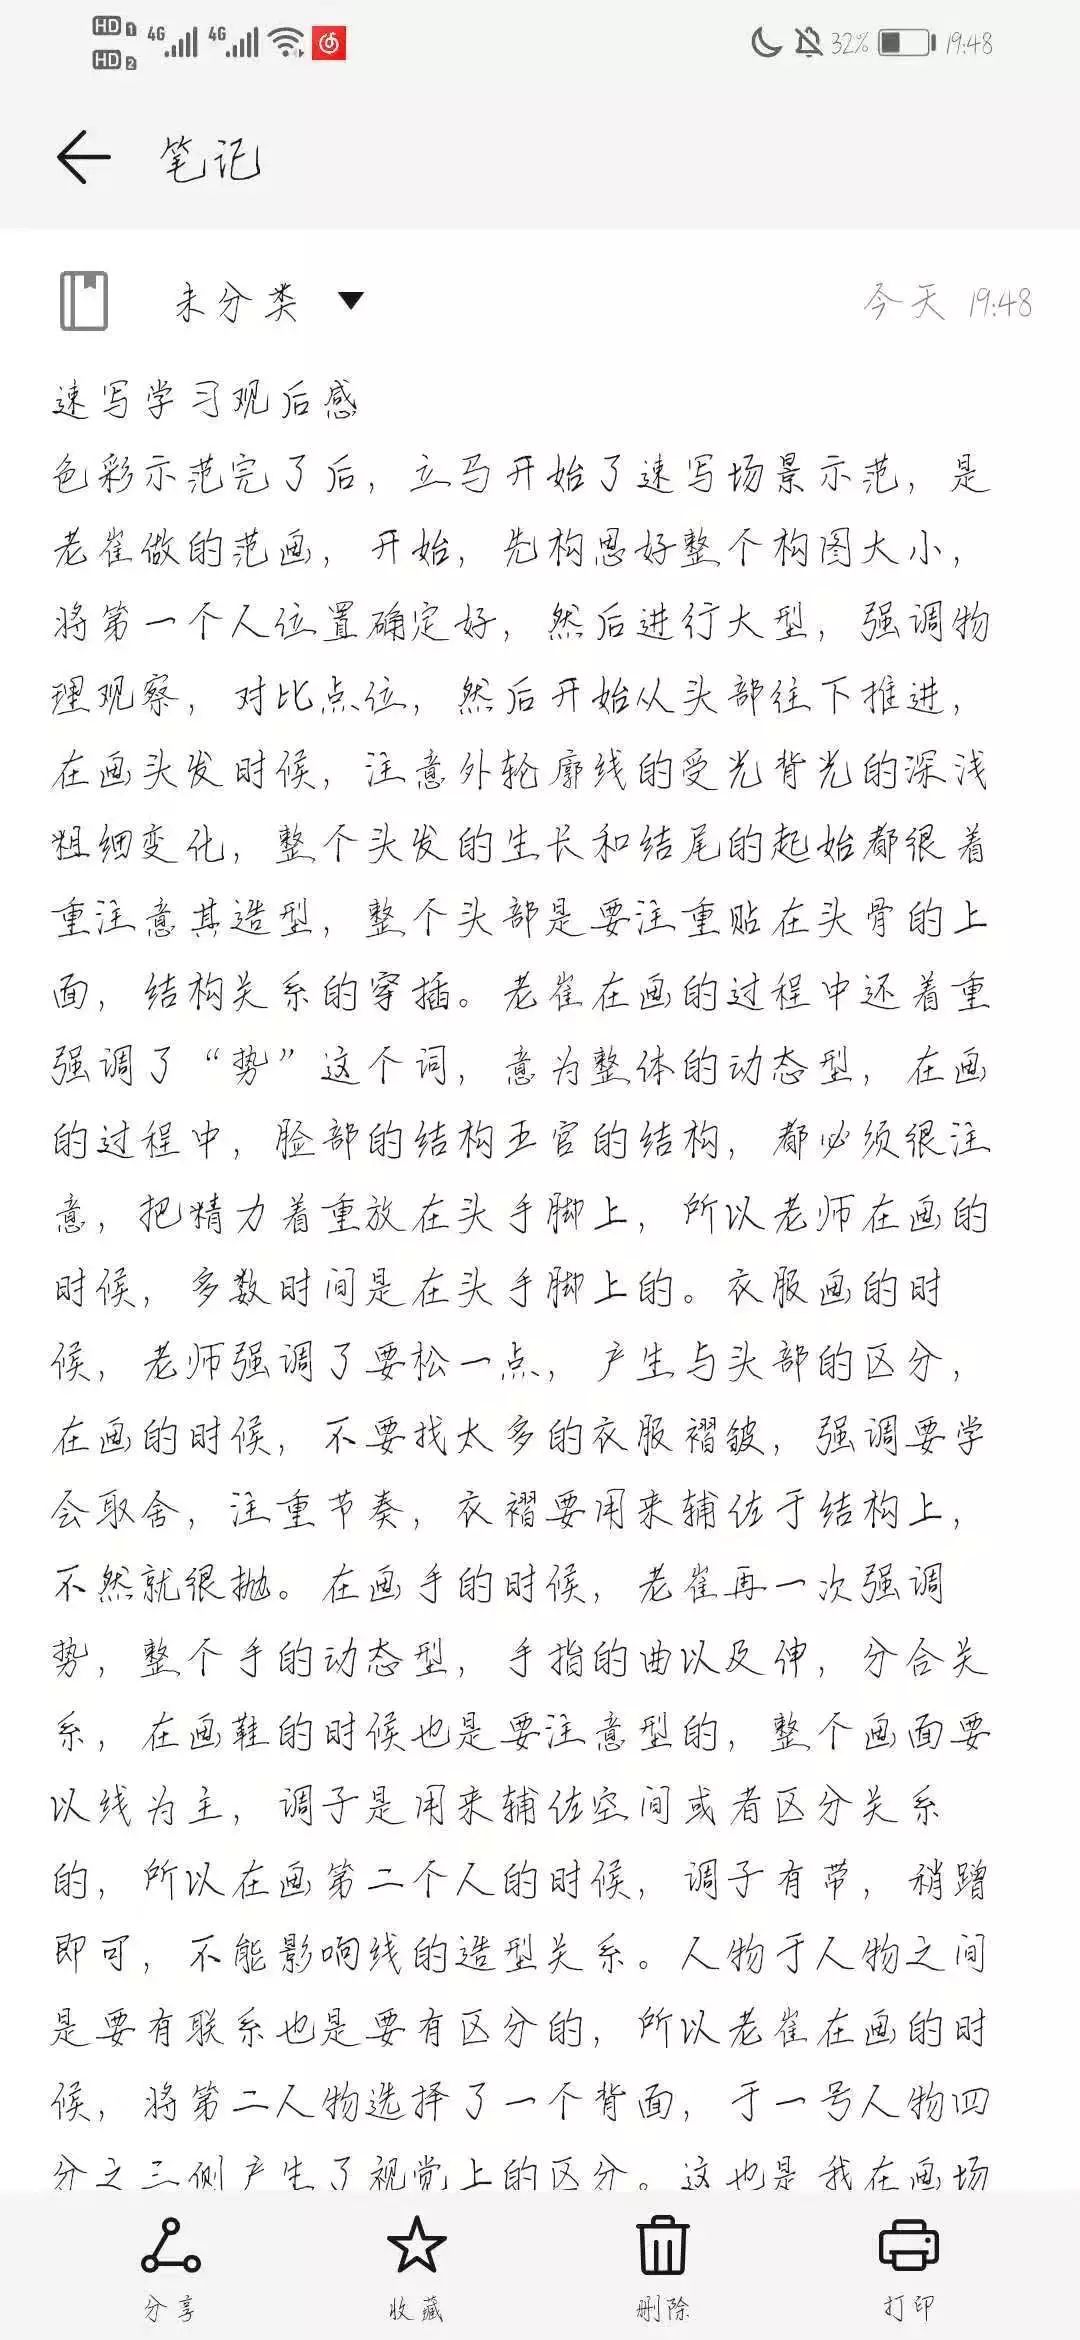 HD 1 4G 4G 32% 19:48
HD 2
笔记
未分类 今天 19:48
速写学习观后感
色彩示范完了后，立马开始了速写场景示范，是
老崔做的范画，开始，先构思好整个构图大小，
将第一个人位置确定好，然后进行大型，强调物
理观察，对比点位，然后开始从头部往下推进，
在画头发时候，注意外轮廓线的受光背光的深浅
粗细变化，整个头发的生长和结尾的起始都很着
重注意其造型，整个头部是要注重贴在头骨的上
面，结构关系的穿插。老崔在画的过程中还着重
强调了“势”这个词，意为整体的动态型，在画
的过程中，脸部的结构五官的结构，都必须很注
意，把精力着重放在头手脚上，所以老师在画的
时候，多数时间是在头手脚上的。衣服画的时
候，老师强调了要松一点，产生与头部的区分，
在画的时候，不要找太多的衣服褶皱，强调要学
会取舍，注重节奏，衣褶要用来辅佐于结构上，
不然就很抛。在画手的时候，老崔再一次强调
势，整个手的动态型，手指的曲以及伸，分合关
系，在画鞋的时候也是要注意型的，整个画面要
以线为主，调子是用来辅佐空间或者区分关系
的，所以在画第二个人的时候，调子有带，稍蹭
即可，不能影响线的造型关系。人物于人物之间
是要有联系也是要有区分的，所以老崔在画的时
候，将第二人物选择了一个背面，于一号人物四
分之三侧产生了视觉上的区分。这也是我在画场
分享 收藏 删除 打印